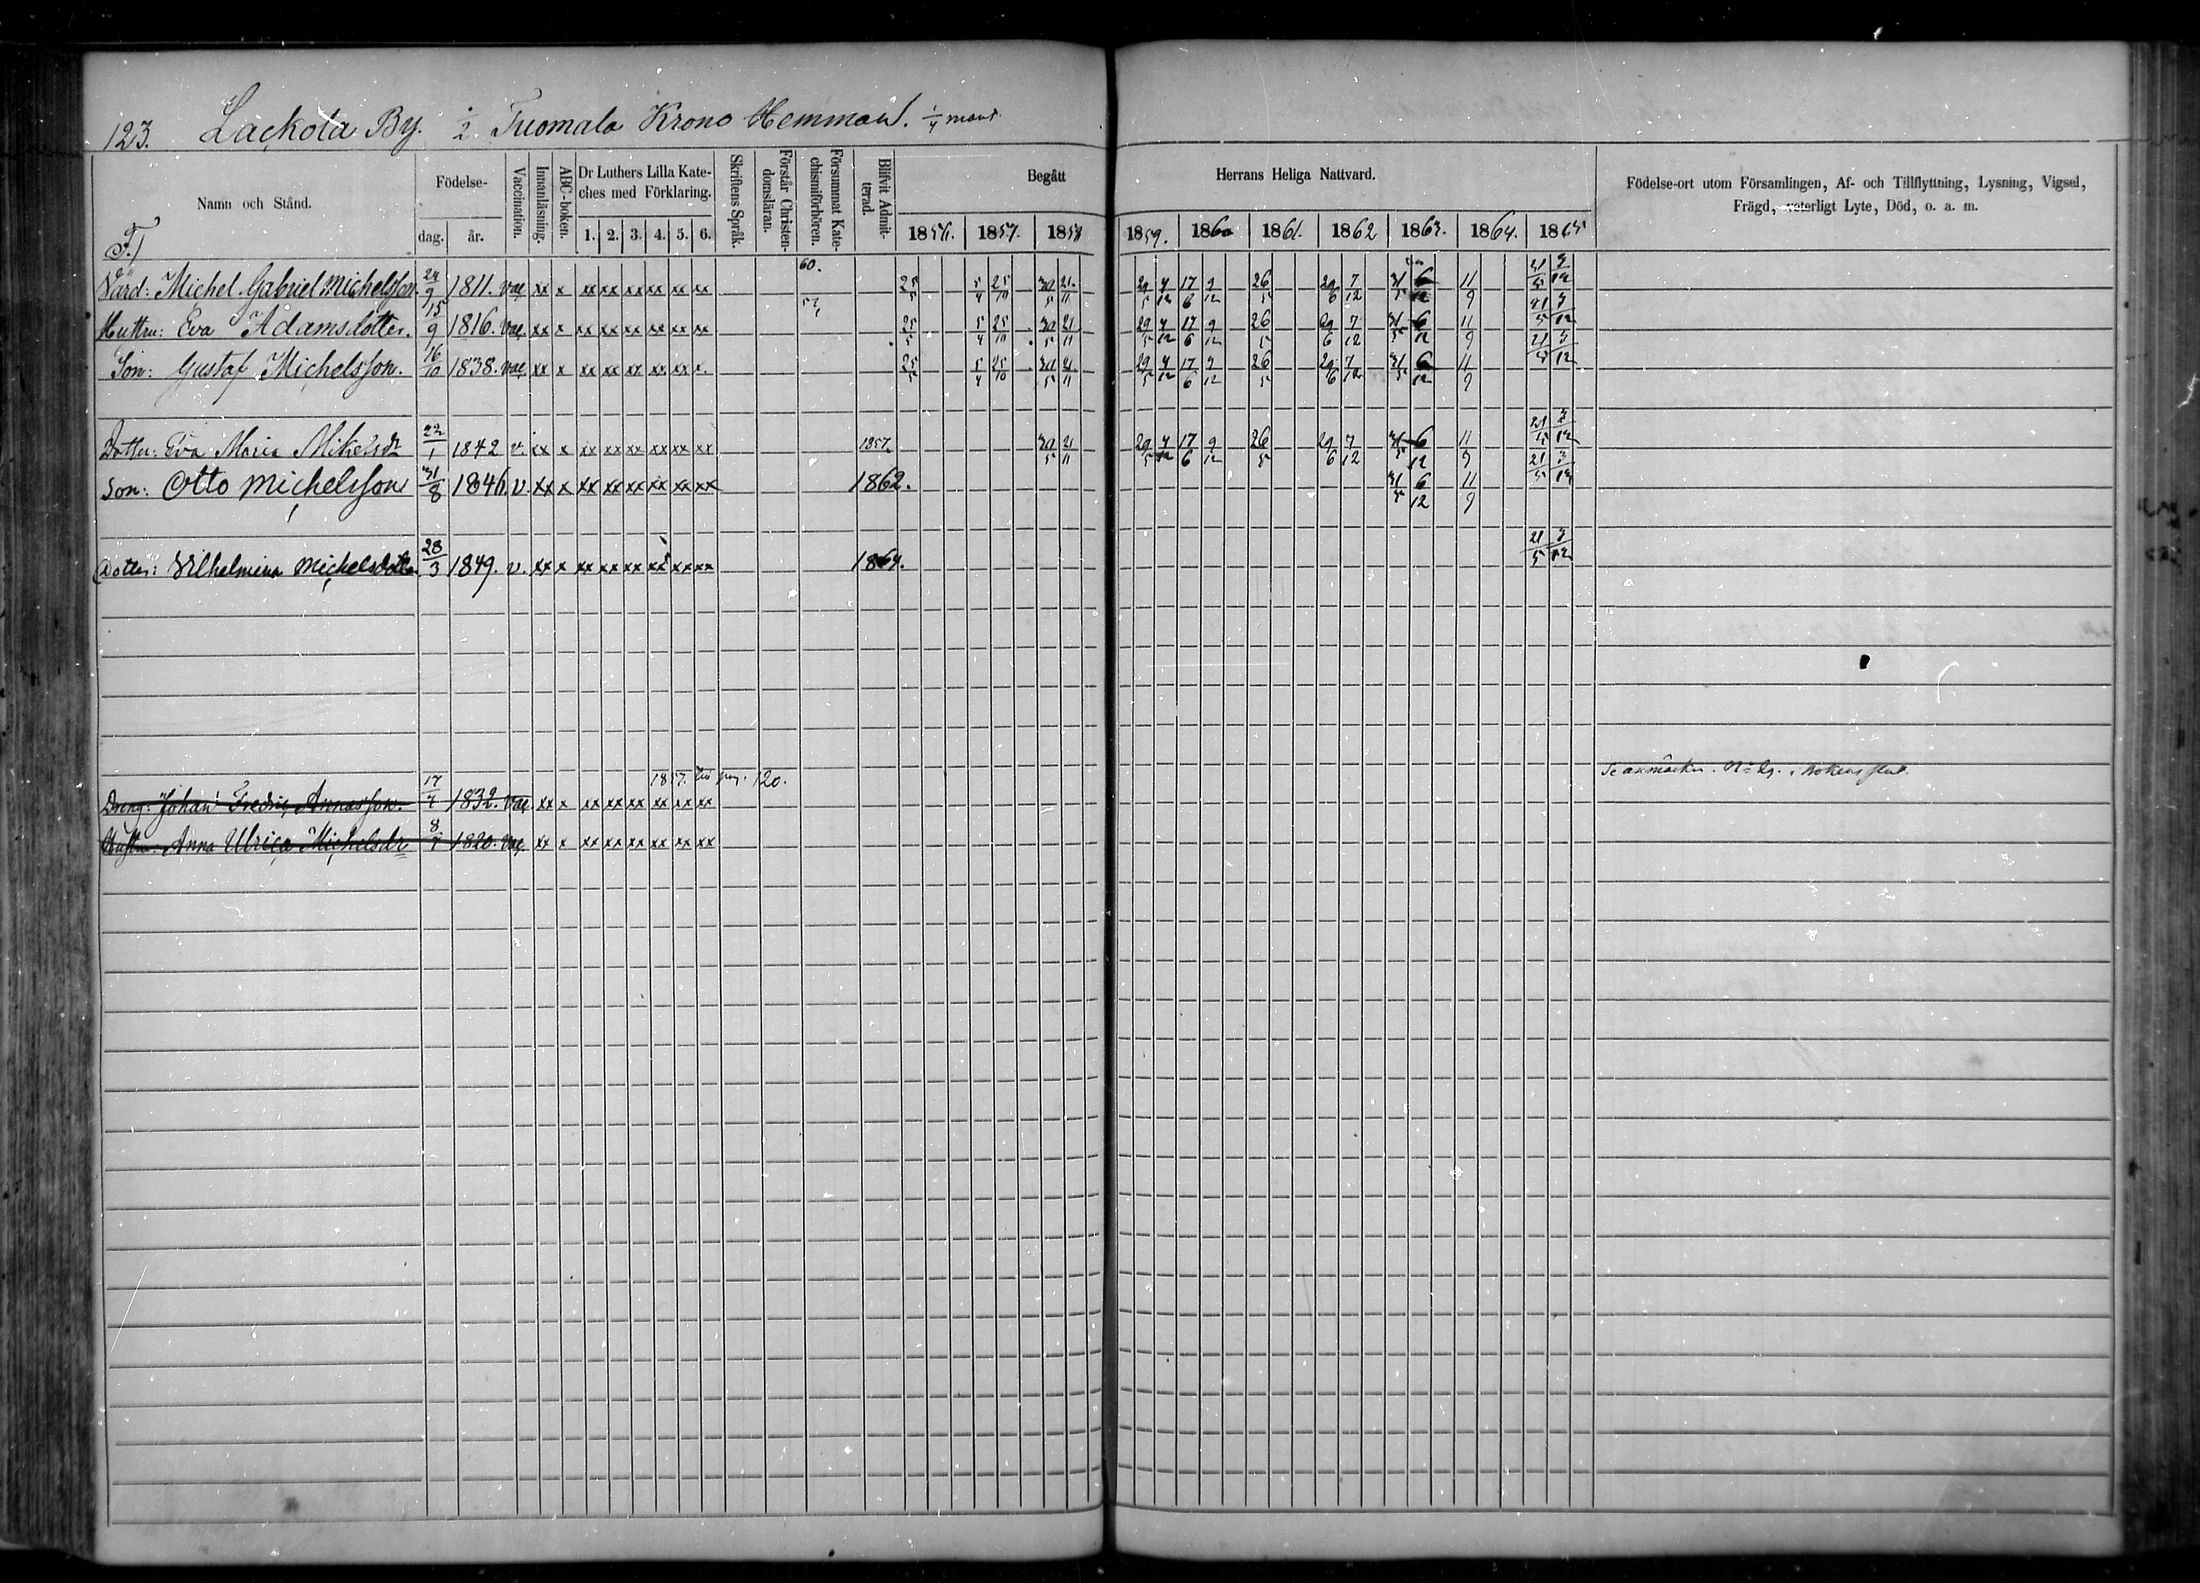 123. Lackola By. 1/2 Tuomala Krono Hemman. 1/4 mant
Namn och Stånd. Födelse- dag. år. Vaccination. Innanläsning. ABC-boken. Dr Luthers Lilla Kateches med Förklaring. 1. 2. 3. 4. 5. 6. Skriftens Språk. Förstår Christendomsläran. Försummat Katechismiförhören. Blifvit Admitterad. Begått Herrans Heliga Nattvard. 1856. 1857. 1858 1859. 1860 1861. 1862 1863. 1864. 1865 Födelse-ort utom Församlingen, Af- och Tillflyttning, Lysning, Vigsel, Frägd, veterligt Lyte, Död, o. a. m.
60.
Värd: Michel Gabriel Michelsson 24/9 1811. vac xx x xx xx xx xx xx xx 25/5 5/4 25/10 30/5 21/11 29/5 4/12 17/6 9/12 26/5 29/6 7/12 31/5 6/12 11/9 21/5 3/12
Hustru: Eva Adamsdotter. 15/9 1816. vac xx x xx xx xx xx xx xx 25/5 5/4 25/10 30/5 21/11 29/5 4/12 17/6 9/12 26/5 29/6 7/12 31/5 6/12 11/9 21/5 3/12
Son: Gustaf Michelsson. 16/10 1838. vac xx x xx xx xx xx xx x. 25/5 5/4 25/10 30/5 21/11 29/5 4/12 17/6 9/12 26/5 29/6 7/12 31/5 6/12 11/9 21/5 3/12
Dotter: Eva Maria Mikelsdr 22/1 1842 v. xx x xx xx xx xx xx xx 1857. 30/5 21/11 29/5 4/12 17/6 9/12 26/5 29/6 7/12 31/5 6/12 11/9 21/5 3/12
Son: Otto Michelsson 31/8 1846. v. xx x xx xx xx xx xx xx 1862. 31/5 6/12 11/9 21/5 3/12
Dotter: Vilhelmina Michelsdotter 28/3 1849. v. xx x xx xx xx xx xx xx 1864. 21/5 3/12
1857. till pag. 120.
Dreng: Johan Fredric Annasson 17/4 1832. vac. xx x xx xx xx xx xx xx
Hustru: Anna Ulrica Michelsdr 8/ 1820. vac xx x xx xx xx xx xx xx
Se anmärkn. No 29. i bokens slut.